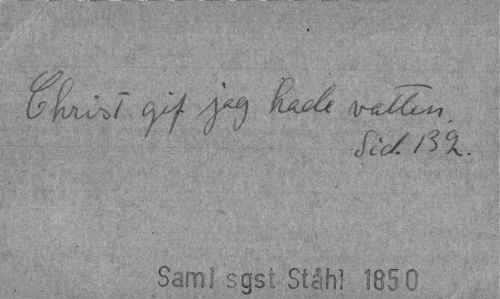 Christ gif jag hade vatten.
Sid. 132.
Saml sgst Ståhl 1850